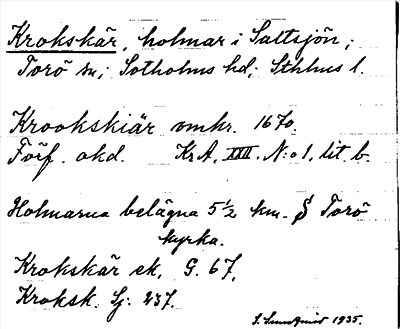 Krokskär, holmar i Saltsjön;
Torö sn; Sotholms hd; Sthlms l.
Krookskiär omkr. 1670.
Förf. okd. Kr A, XXII. N:o 1, lit. b.
Holmarna belägna 5½ km. S Torö
kyrka.
Krokskär ek. G. 67,
Kroksk. Sj: 237.
1935.